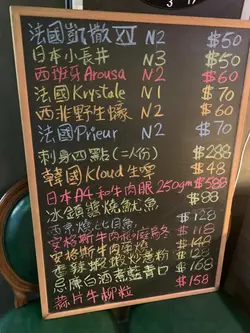 法國凱撒 XV N2 $50
日本小長井 N3 $50
西班牙 Arousa N2 $60
法國 Krystale N1 $70
西非野生蠔 N2 $60
法國 Prieur N2 $70
刺身四點(二人份) $288
韓國 Kloud 生啤 $48
日本A4和牛肉眼 250gm $588
冰鎮醬燒魷魚 $88
燒比目魚 $128
安格斯牛 $118
安格斯牛 $148
炒意粉 $128
白酒煮藍青口 $168
蒜片牛柳粒 $158